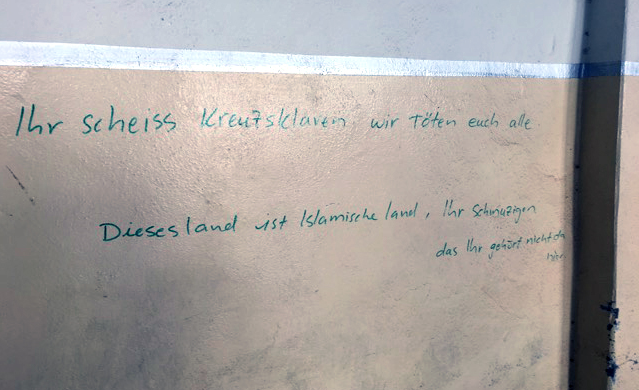 Ihr scheiss Kreuzsklaven wir töten euch alle
Dieses land ist Islamische land, Ihr Schmuzigen
das Ihr gehört nicht da
hier